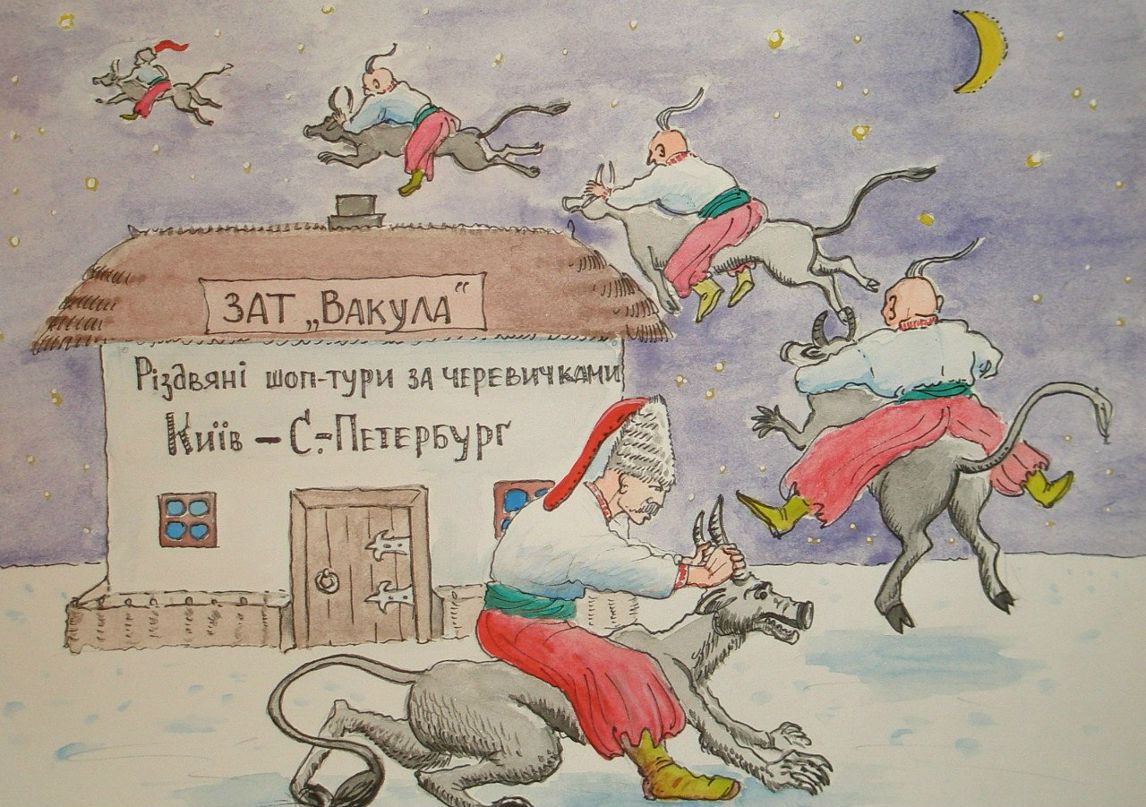 ЗАТ „ВАКУЛА“
Різдвяні шоп-тури за черевичками
Київ – С.-Петербург